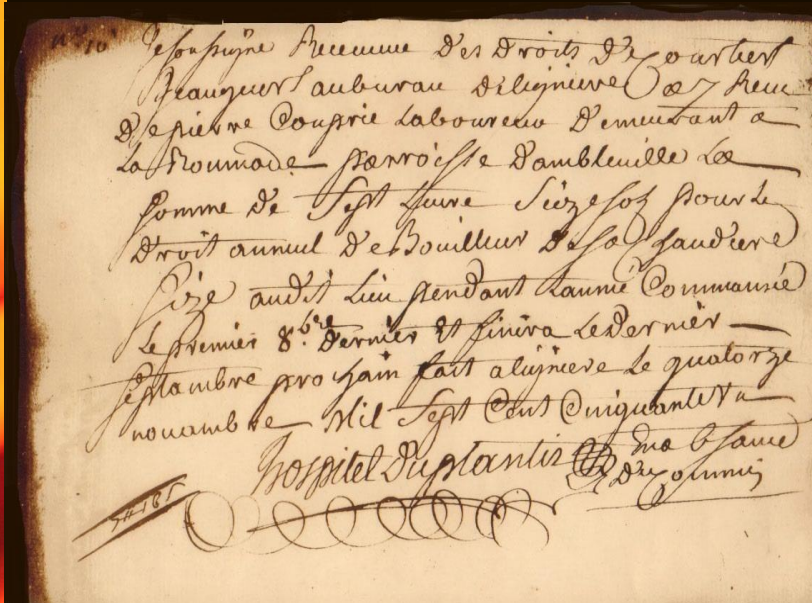 n° 10
Je soussigne Receveur des droits de Courtiers
Jeaugeurs au bureau de lignieres ay Receu
de pierre Couprie Laboureur demeurant a
La Roumade parroisse dambleuille La
somme de Sept Liure Sieze sols pour Le
droit annuel de Bouilleur de sa chaudiere
size audit Lieu pendant Lannée Commansée
Le premier 8.bre dernier Et finira Le dernier
septambre prochain fait a lignieres Le quatorze
nouambre Mil Sept Cent Cinquante
hospitel Duplantis
du Commis